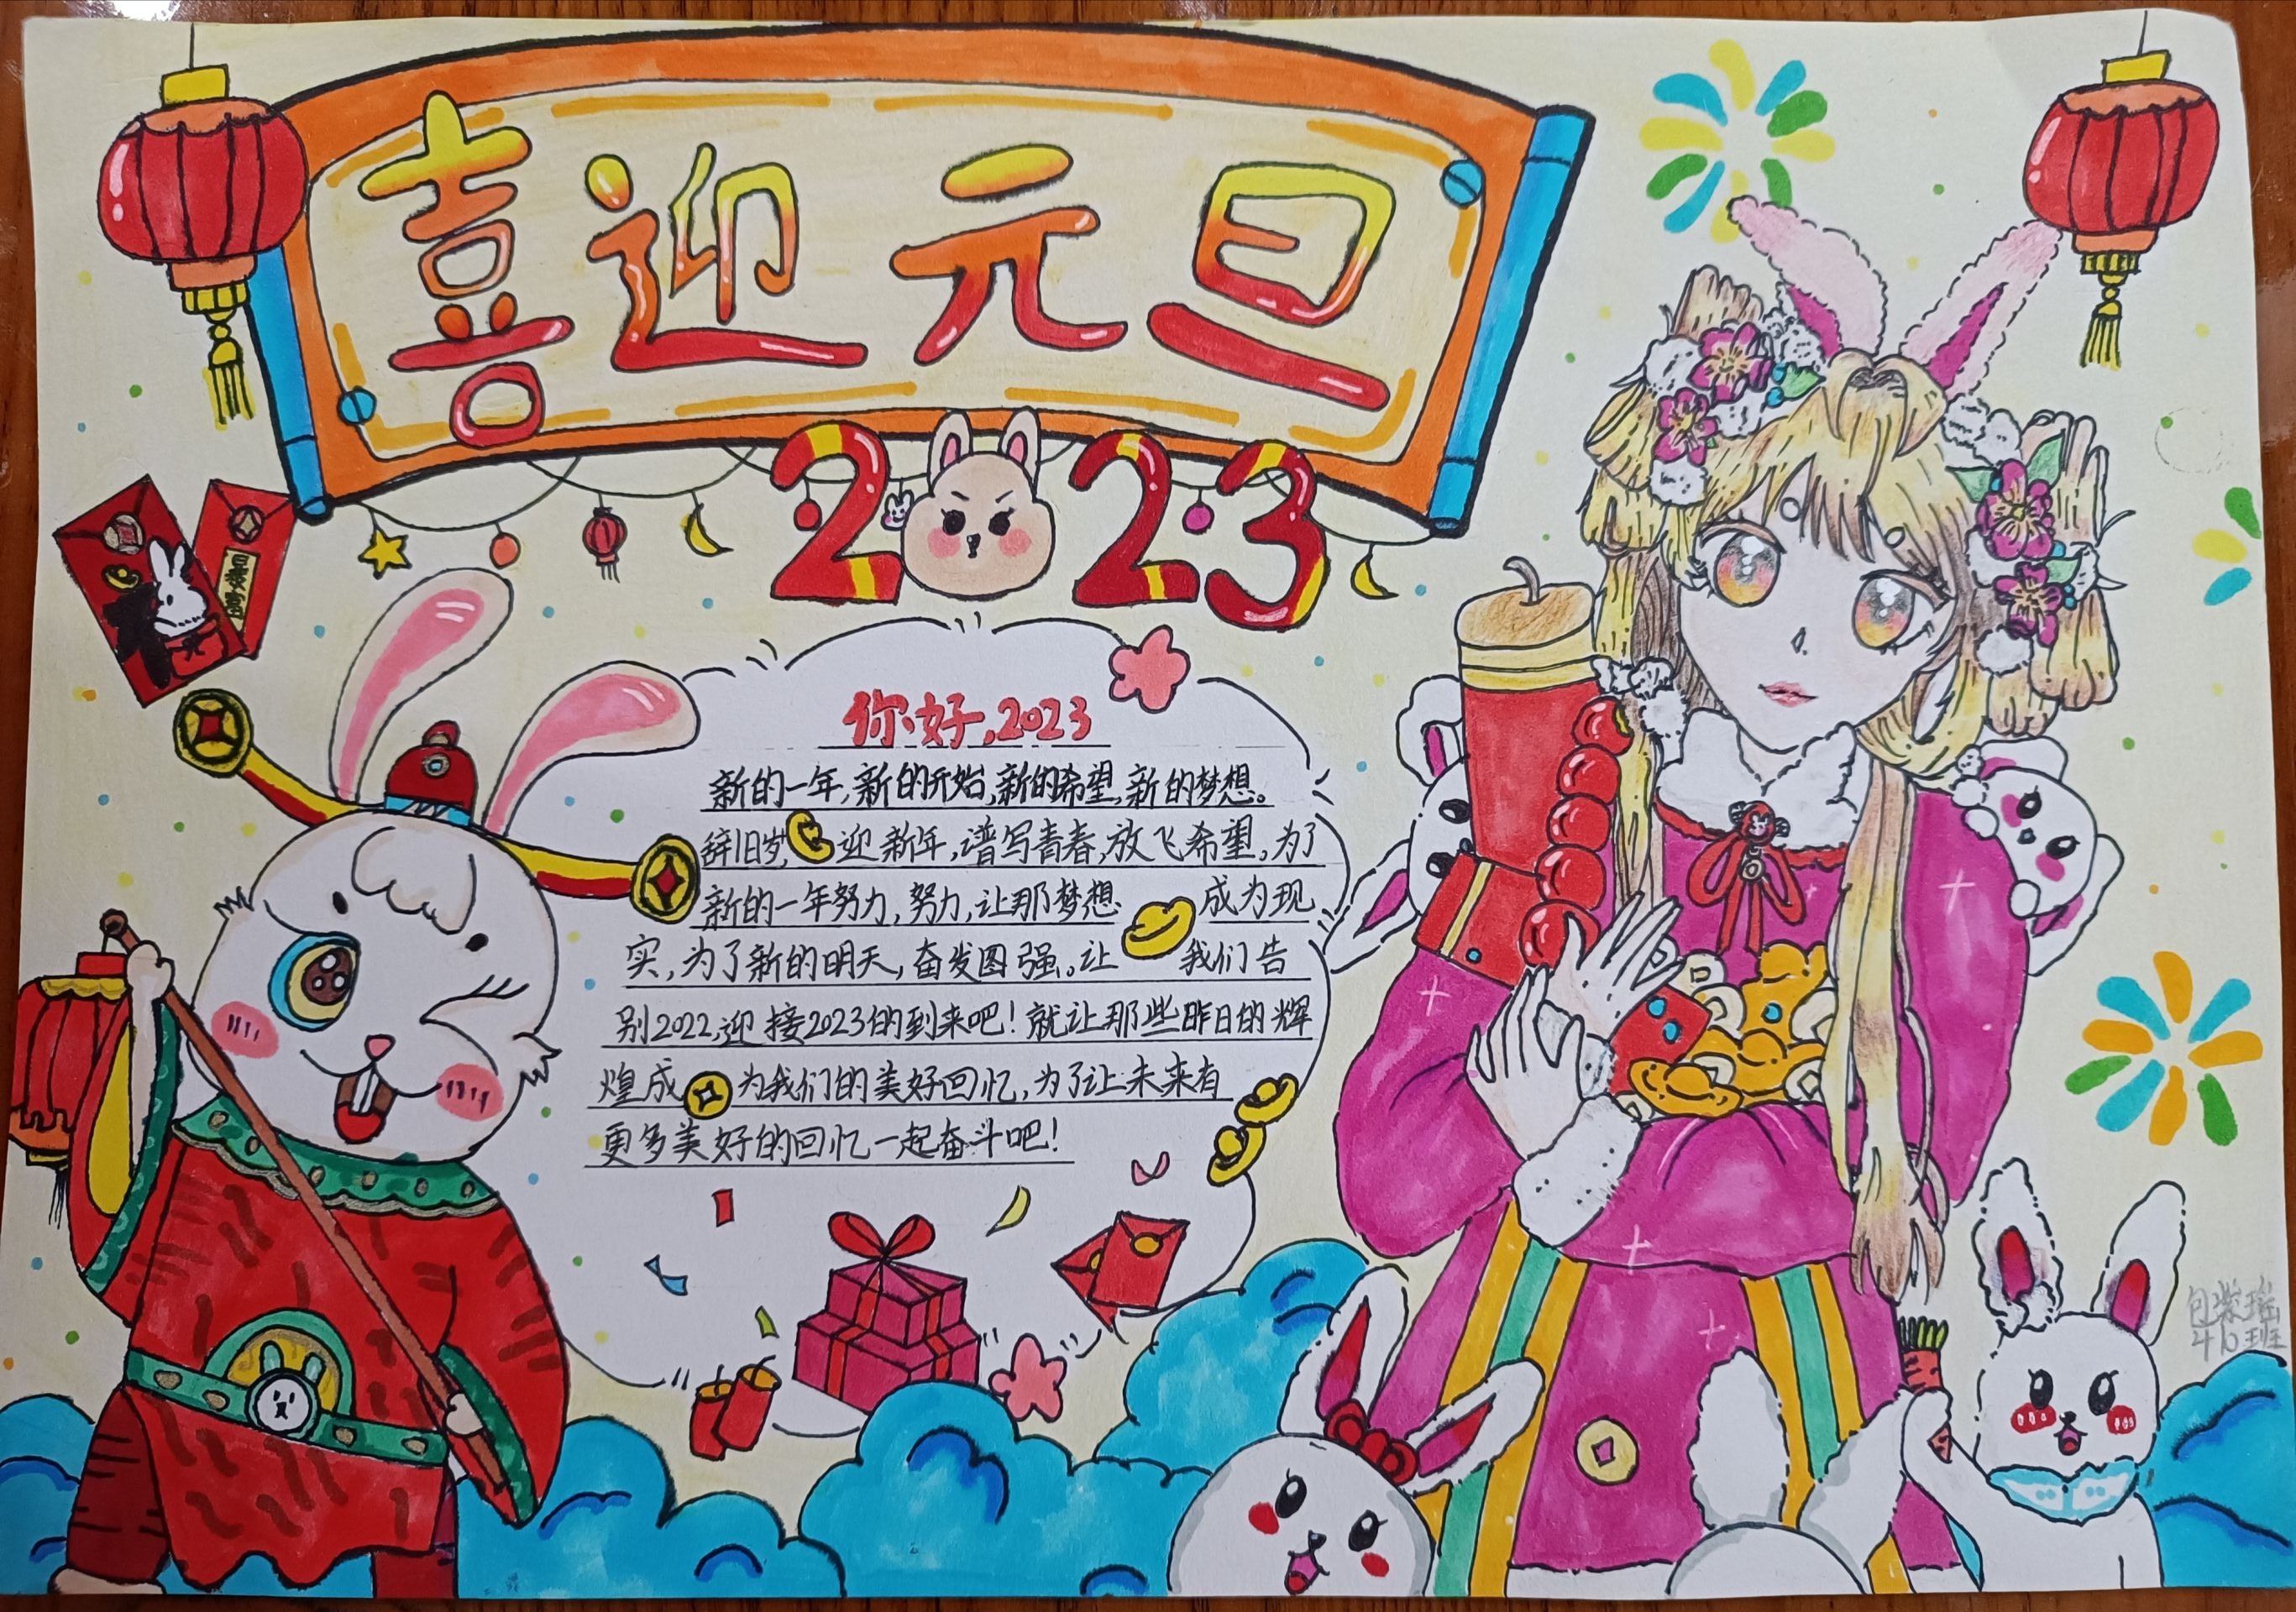 喜迎元旦
2023
你好,2023
新的一年,新的开始,新的希望,新的梦想。
辞旧岁,迎新年,谱写青春,放飞希望。为了
新的一年努力,努力,让那梦想成为现
实,为了新的明天,奋发图强。让我们告
别2022,迎接2023的到来吧!就让那些昨日的辉
煌成为我们的美好回忆,为了让未来有
更多美好的回忆一起奋斗吧!